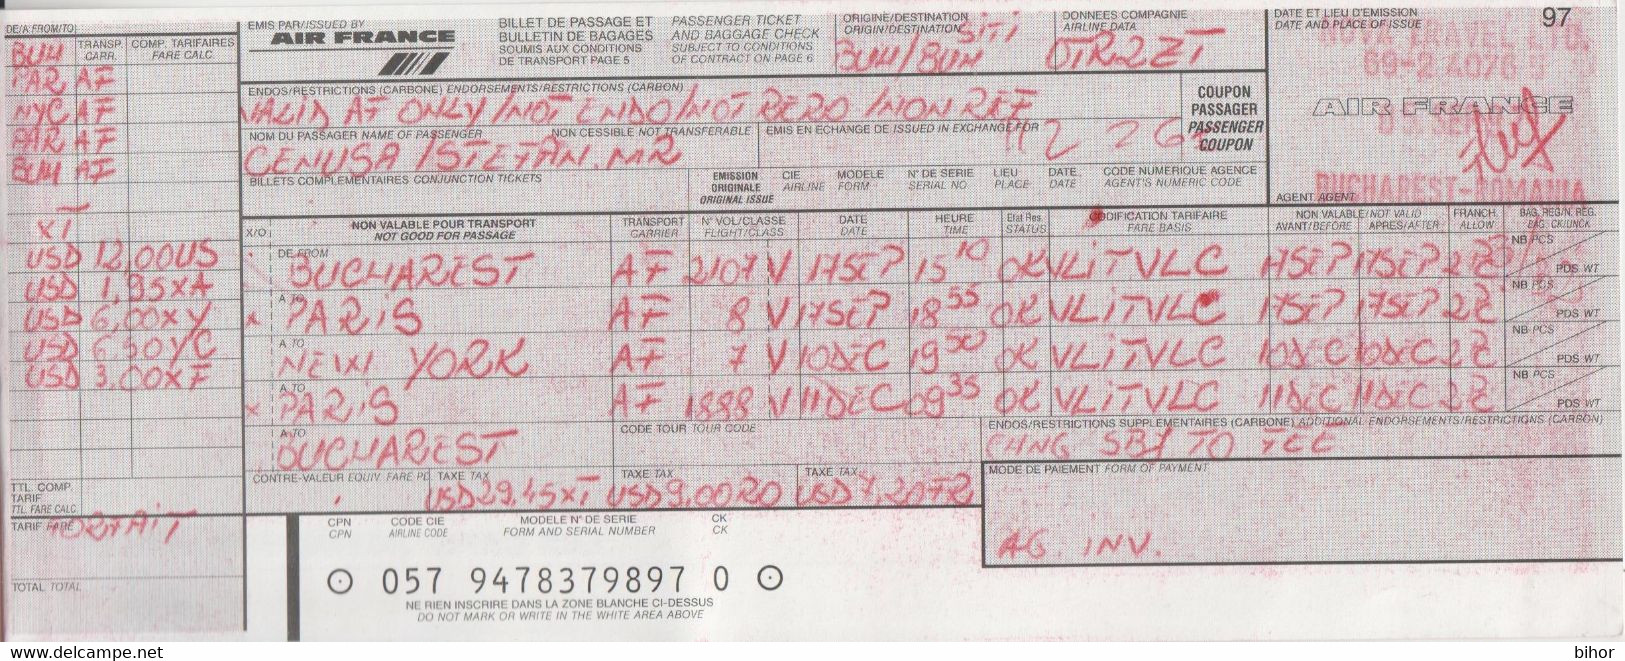 DE/A FROM/TO
TRANSP. CARR.
COMP. TARIFAIRES
FARE CALC.
BUH
PAR AF
NYC AF
PAR AF
BUH AF
XT
USD 12,00US
USD 1,95XA
USD 6,00XY
USD 6,50YC
USD 3,00XF
TTL. COMP.
TARIF
TTL. FARE CALC.
TARIF FARE
FORFAIT
TOTAL TOTAL
EMIS PAR/ISSUED BY
AIR FRANCE
BILLET DE PASSAGE ET
BULLETIN DE BAGAGES
SOUMIS AUX CONDITIONS
DE TRANSPORT PAGE 5
PASSENGER TICKET
AND BAGGAGE CHECK
SUBJECT TO CONDITIONS
OF CONTRACT ON PAGE 6
ORIGINE/DESTINATION
ORIGIN/DESTINATION
SITI
BUH/BUH
DONNEES COMPAGNIE
AIRLINE DATA
OTR2ET
DATE ET LIEU D'EMISSION
DATE AND PLACE OF ISSUE
97
NOVA TRAVEL LTD.
69-2 4076
AIR FRANCE
BUCHAREST-ROMANIA
AGENT AGENT
ENDOS/RESTRICTIONS (CARBONE) ENDORSEMENTS/RESTRICTIONS (CARBON)
VALID AF ONLY/NOT ENDO/NOT RERO/NON REF
COUPON
PASSAGER
PASSENGER
COUPON
NOM DU PASSAGER NAME OF PASSENGER
NON CESSIBLE NOT TRANSFERABLE
EMIS EN ECHANGE DE ISSUED IN EXCHANGE FOR
CENUSA/STEFAN.MR
BILLETS COMPLEMENTAIRES CONJUNCTION TICKETS
EMISSION
ORIGINALE
ORIGINAL ISSUE
CIE
AIRLINE
MODELE
FORM
N° DE SERIE
SERIAL NO
LIEU
PLACE
DATE
DATE
CODE NUMERIQUE AGENCE
AGENT'S NUMERIC CODE
X/O
NON VALABLE POUR TRANSPORT
NOT GOOD FOR PASSAGE
TRANSPORT
CARRIER
N° VOL/CLASSE
FLIGHT/CLASS
DATE
DATE
HEURE
TIME
Etat Res.
STATUS
CODIFICATION TARIFAIRE
FARE BASIS
NON VALABLE/NOT VALID
AVANT/BEFORE APRES/AFTER
FRANCH.
ALLOW
BAG. REG/N. REG.
BAG. CK/UNCK
DE FROM BUCHAREST AF 2107 V 17SEP 15 10 OK VLITVLC 17SEP 17SEP NB PCS PDS WT
X A TO PARIS AF 8 V 17SEP 18 55 OK VLITVLC 17SEP 17SEP NB PCS PDS WT
A TO NEW YORK AF 7 V 10DEC 19 50 OK VLITVLC 10DEC 10DEC NB PCS PDS WT
X A TO PARIS AF 1888 V 11DEC 09 35 OK VLITVLC 11DEC 11DEC NB PCS PDS WT
A TO BUCHAREST
CODE TOUR TOUR CODE
ENDOS/RESTRICTIONS SUPPLEMENTAIRES (CARBONE) ADDITIONAL ENDORSEMENTS/RESTRICTIONS (CARBON)
CHNG SBJ TO FEE
CONTRE-VALEUR EQUIV. FARE PD.
TAXE TAX
TAXE TAX
TAXE TAX
USD29.45XT USD9,00RO USD7,20FR
MODE DE PAIEMENT FORM OF PAYMENT
AG. INV.
CPN
CPN
CODE CIE
AIRLINE CODE
MODELE N° DE SERIE
FORM AND SERIAL NUMBER
CK
CK
057 9478379897 0
NE RIEN INSCRIRE DANS LA ZONE BLANCHE CI-DESSUS
DO NOT MARK OR WRITE IN THE WHITE AREA ABOVE
www.delcampe.net
bihor